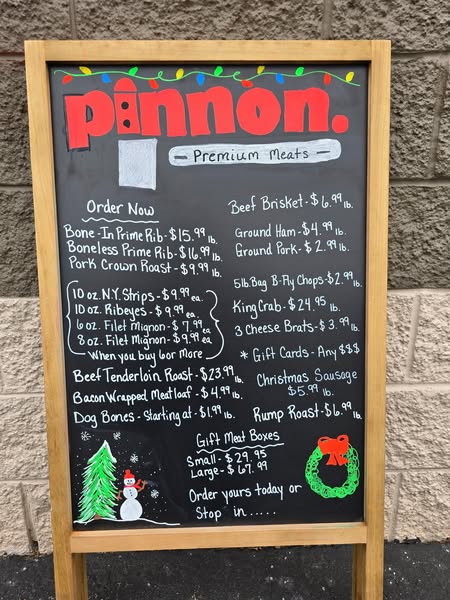 pinnon.
- Premium Meats -
Order Now
Bone-In Prime Rib - $15.99 lb.
Boneless Prime Rib - $16.99 lb.
Pork Crown Roast - $9.99 lb.
10 oz. N.Y. Strips - $9.99 ea.
10 oz. Ribeyes - $9.99 ea.
6 oz. Filet Mignon - $7.99 ea
8 oz. Filet Mignon - $9.99 ea.
When you buy 6 or More
Beef Tenderloin Roast - $23.99 lb.
Bacon Wrapped Meatloaf - $4.99 lb.
Dog Bones - Starting at - $1.99 lb.
Beef Brisket - $6.99 lb.
Ground Ham - $4.99 lb.
Ground Pork - $2.99 lb.
5 lb. Bag B-Fly Chops - $2.99 lb.
King Crab - $24.95 lb.
3 Cheese Brats - $3.99 lb.
* Gift Cards - Any $$$
Christmas Sausage
$5.99 lb.
Rump Roast - $6.99 lb.
Gift Meat Boxes
Small - $29.95
Large - $67.99
Order yours today or
Stop in.....